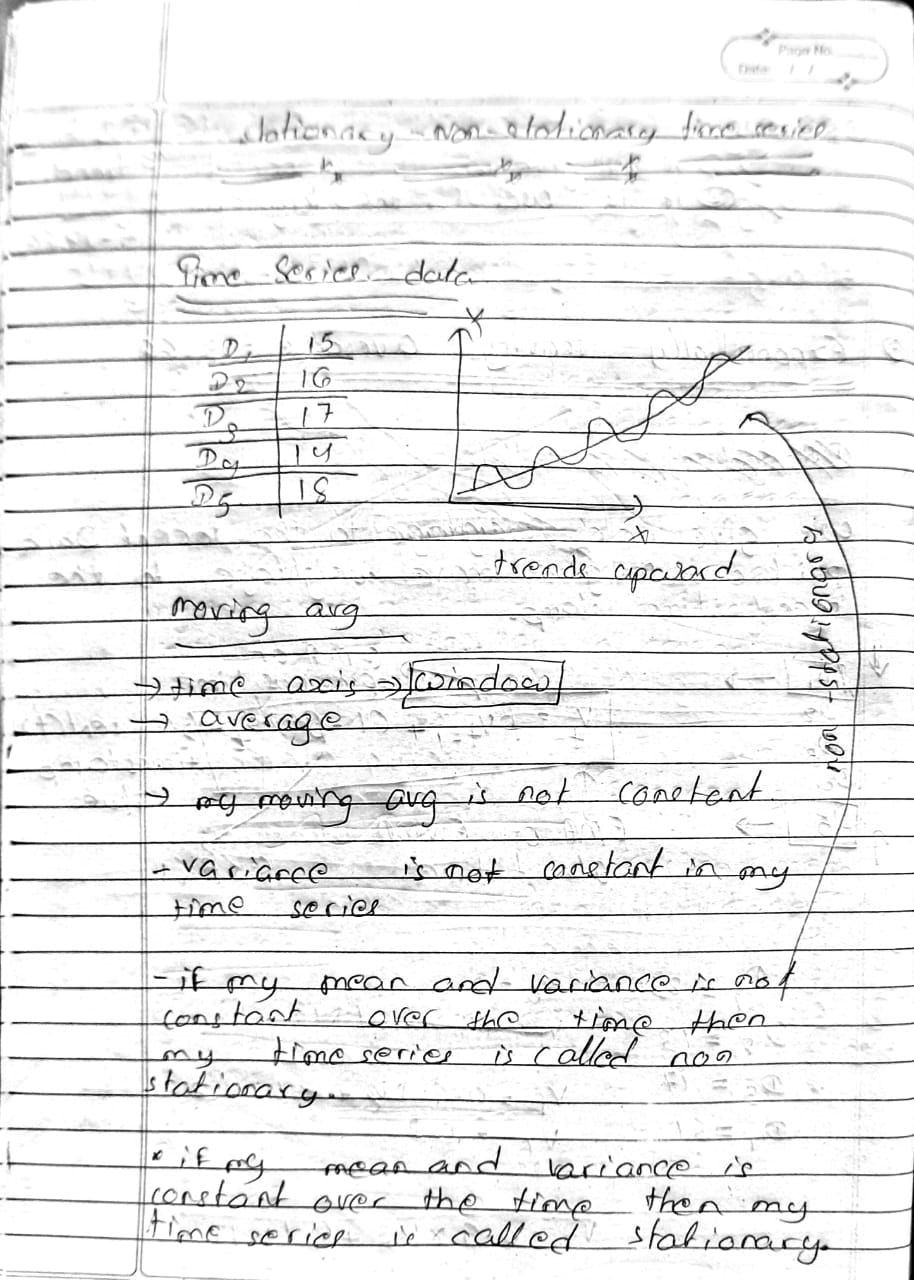 Page No.
Date / /
stationary - non-stationary time series
Time Series data
D1 15
D2 16
D3 17
D4 14
D5 18
Y
X
trends upward
non-stationary
moving avg
→ time axis → window
→ average
→ my moving avg is not constant
- variance is not constant in my
time series
- if my mean and variance is not
constant over the time then
my time series is called non
stationary.
* if my mean and variance is
constant over the time then my
time series is called stationary.